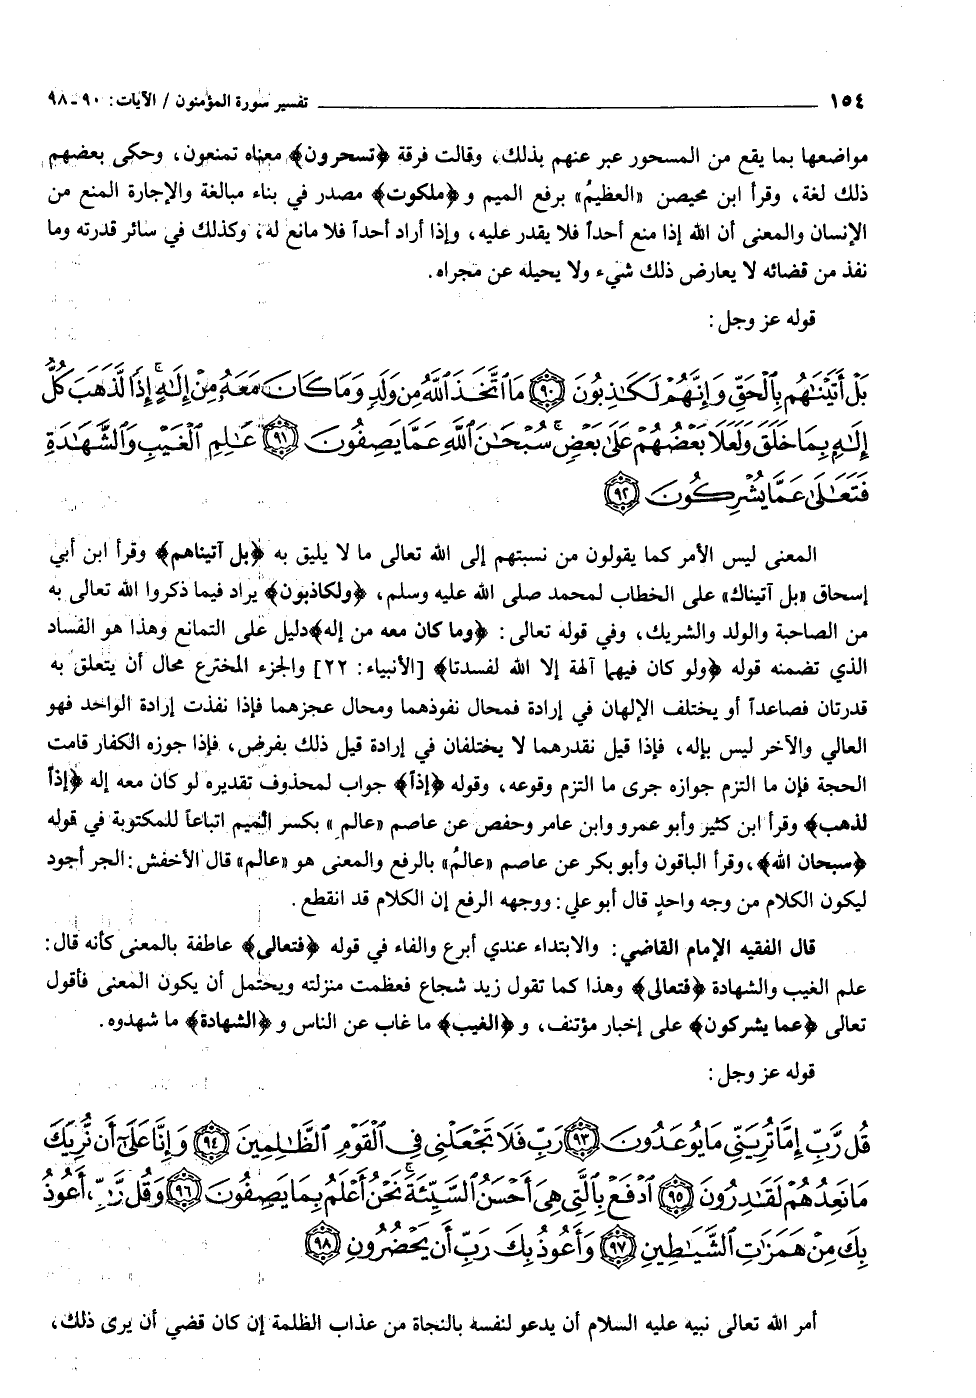 ١٥٤ ــــــــــــــــــــــــ تفسير سورة المؤمنون / الآيات: ٩٠ـ٩٨
مواضعها بما يقع من المسحور عبر عنهم بذلك، وقالت فرقة ﴿تسحرون﴾ معناه تمنعون، وحكى بعضهم
ذلك لغة، وقرأ ابن محيصن «العظيمُ» برفع الميم و﴿ملكوت﴾ مصدر في بناء مبالغة والإجارة المنع من
الإنسان والمعنى أن الله إذا منع أحداً فلا يقدر عليه، وإذا أراد أحداً فلا مانع له، وكذلك في سائر قدرته وما
نفذ من قضائه لا يعارض ذلك شيء ولا يحيله عن مجراه.
قوله عز وجل:
بَلْ أَتَيْنَٰهُم بِالْحَقِّ وَإِنَّهُمْ لَكَٰذِبُونَ ﴿٩٠﴾ مَا اتَّخَذَ اللَّهُ مِن وَلَدٍ وَمَا كَانَ مَعَهُ مِنْ إِلَٰهٍ ۚ إِذًا لَّذَهَبَ كُلُّ
إِلَٰهٍ بِمَا خَلَقَ وَلَعَلَا بَعْضُهُمْ عَلَىٰ بَعْضٍ ۚ سُبْحَٰنَ اللَّهِ عَمَّا يَصِفُونَ ﴿٩١﴾ عَٰلِمِ الْغَيْبِ وَالشَّهَٰدَةِ
فَتَعَٰلَىٰ عَمَّا يُشْرِكُونَ ﴿٩٢﴾
المعنى ليس الأمر كما يقولون من نسبتهم إلى الله تعالى ما لا يليق به ﴿بل آتيناهم﴾ وقرأ ابن أبي
إسحاق «بل آتيناك» على الخطاب لمحمد صلى الله عليه وسلم، ﴿ولكاذبون﴾ يراد فيما ذكروا الله تعالى به
من الصاحبة والولد والشريك، وفي قوله تعالى: ﴿وما كان معه من إله﴾دليل على التمانع وهذا هو الفساد
الذي تضمنه قوله ﴿ولو كان فيهما آلهة إلا الله لفسدتا﴾ [الأنبياء: ٢٢] والجزء المخترع محال أن يتعلق به
قدرتان فصاعداً أو يختلف الإلهان في إرادة فمحال نفوذهما ومحال عجزهما فإذا نفذت إرادة الواحد فهو
العالي والآخر ليس بإله، فإذا قيل نقدرهما لا يختلفان في إرادة قيل ذلك بفرض، فإذا جوزه الكفار قامت
الحجة فإن ما التزم جوازه جرى ما التزم وقوعه، وقوله ﴿إذاً﴾ جواب لمحذوف تقديره لو كان معه إله ﴿إذاً
لذهب﴾ وقرأ ابن كثير وأبو عمرو وابن عامر وحفص عن عاصم «عالمِ» بكسر الميم اتباعاً للمكتوبة في قوله
﴿سبحان الله﴾،وقرأ الباقون وأبو بكر عن عاصم «عالمُ» بالرفع والمعنى هو «عالم» قال الأخفش:الجر أجود
ليكون الكلام من وجه واحدٍ قال أبو علي: ووجهه الرفع إن الكلام قد انقطع.
قال الفقيه الإمام القاضي: والابتداء عندي أبرع والفاء في قوله ﴿فتعالى﴾ عاطفة بالمعنى كأنه قال:
علم الغيب والشهادة ﴿فتعالى﴾ وهذا كما تقول زيد شجاع فعظمت منزلته ويحتمل أن يكون المعنى فأقول
تعالى ﴿عما يشركون﴾ على إخبار مؤتنف، و﴿الغيب﴾ ما غاب عن الناس و﴿الشهادة﴾ ما شهدوه.
قوله عز وجل:
قُل رَّبِّ إِمَّا تُرِيَنِّي مَا يُوعَدُونَ ﴿٩٣﴾ رَبِّ فَلَا تَجْعَلْنِي فِي الْقَوْمِ الظَّٰلِمِينَ ﴿٩٤﴾ وَإِنَّا عَلَىٰٓ أَن نُّرِيَكَ
مَا نَعِدُهُمْ لَقَٰدِرُونَ ﴿٩٥﴾ ادْفَعْ بِالَّتِي هِيَ أَحْسَنُ السَّيِّئَةَ ۚ نَحْنُ أَعْلَمُ بِمَا يَصِفُونَ ﴿٩٦﴾ وَقُل رَّبِّ أَعُوذُ
بِكَ مِنْ هَمَزَٰتِ الشَّيَٰطِينِ ﴿٩٧﴾ وَأَعُوذُ بِكَ رَبِّ أَن يَحْضُرُونِ ﴿٩٨﴾
أمر الله تعالى نبيه عليه السلام أن يدعو لنفسه بالنجاة من عذاب الظلمة إن كان قضي أن يرى ذلك،